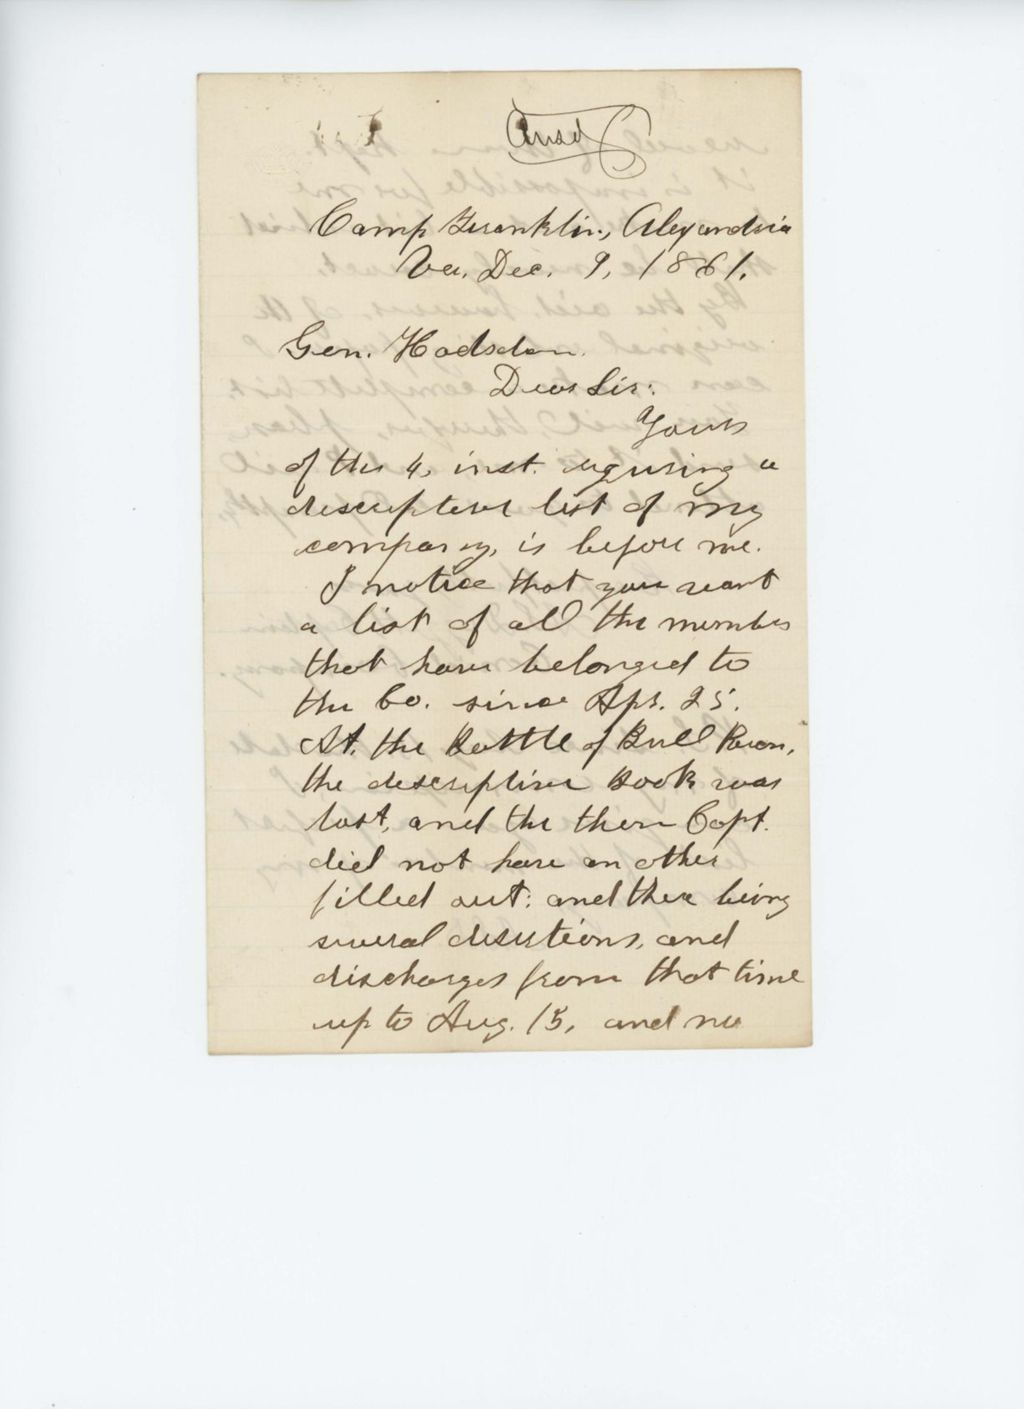 Ansd
Camp Franklin, Alexandria
Va. Dec. 9, 1861.
Gen. Hodsdon.
Dear Sir:
Yours
of the 4, inst. requiring a
descriptive list of my
company, is before me.
I notice that you want
a list of all the members
that have belonged to
the Co. since Apr. 25.
At. the Battle of Bull Run,
the descriptive Book was
lost, and the then Capt.
did not have another
filled out: and there being
several desertions, and
discharges from that time
up to Aug. 15, and no